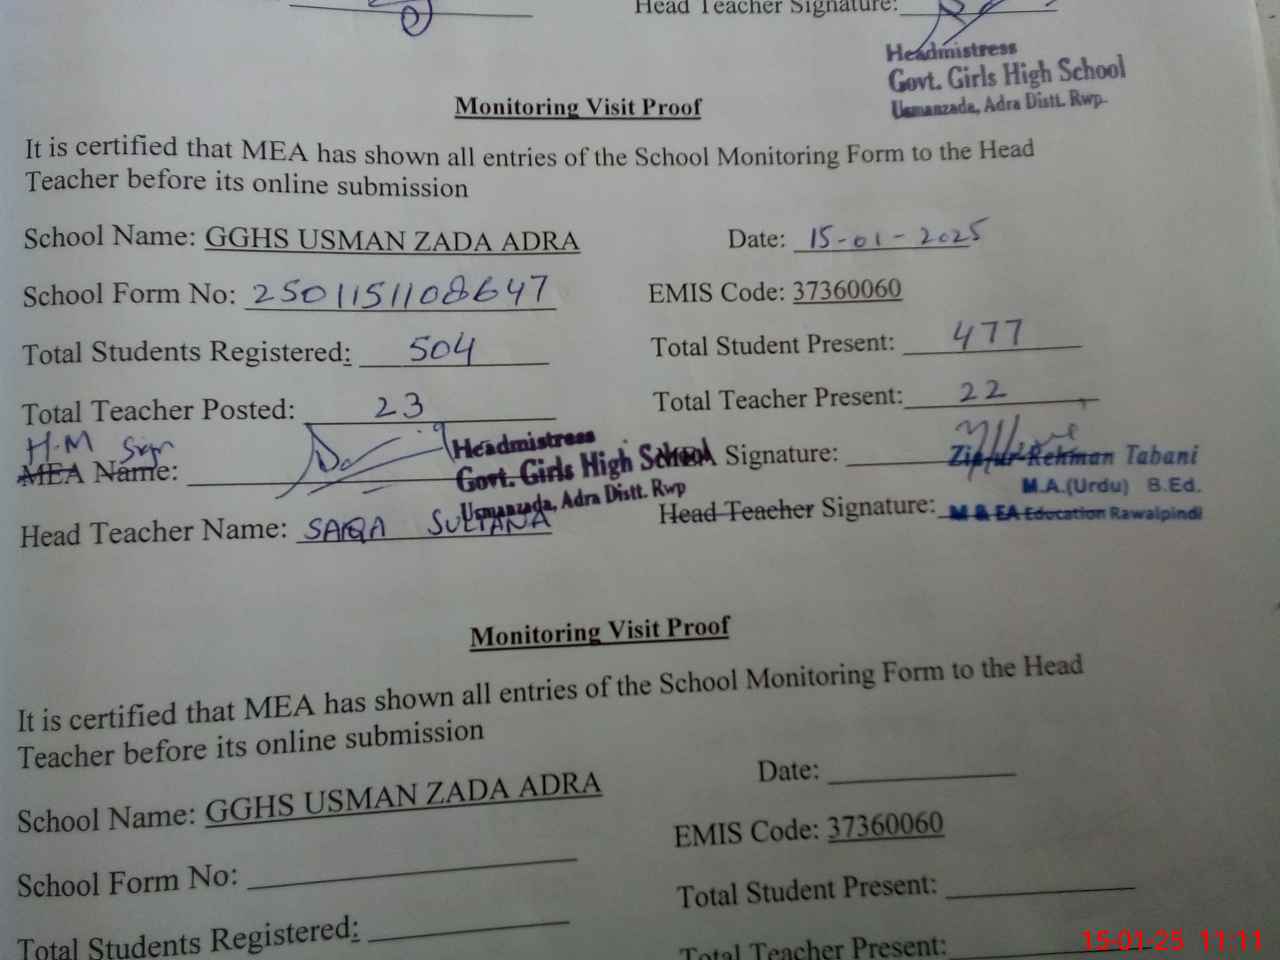 Head Teacher Signature:
Headmistress
Govt. Girls High School
Usmanzada, Adra Distt. Rwp.
Monitoring Visit Proof
It is certified that MEA has shown all entries of the School Monitoring Form to the Head
Teacher before its online submission
School Name: GGHS USMAN ZADA ADRA Date: 15-01-2025
School Form No: 2501151108647 EMIS Code: 37360060
Total Students Registered: 504 Total Student Present: 477
Total Teacher Posted: 23 Total Teacher Present: 22
H.M Sign
MEA Name: MEA Signature:
Headmistress
Govt. Girls High School
Usmanzada, Adra Distt. Rwp
Rehman Tabani
M.A.(Urdu) B.Ed.
M & EA Education Rawalpindi
Head Teacher Name: SAIQA SULTANA Head Teacher Signature:
Monitoring Visit Proof
It is certified that MEA has shown all entries of the School Monitoring Form to the Head
Teacher before its online submission
School Name: GGHS USMAN ZADA ADRA Date:
School Form No: EMIS Code: 37360060
Total Students Registered: Total Student Present:
Total Teacher Present:
15-01-25 11:11